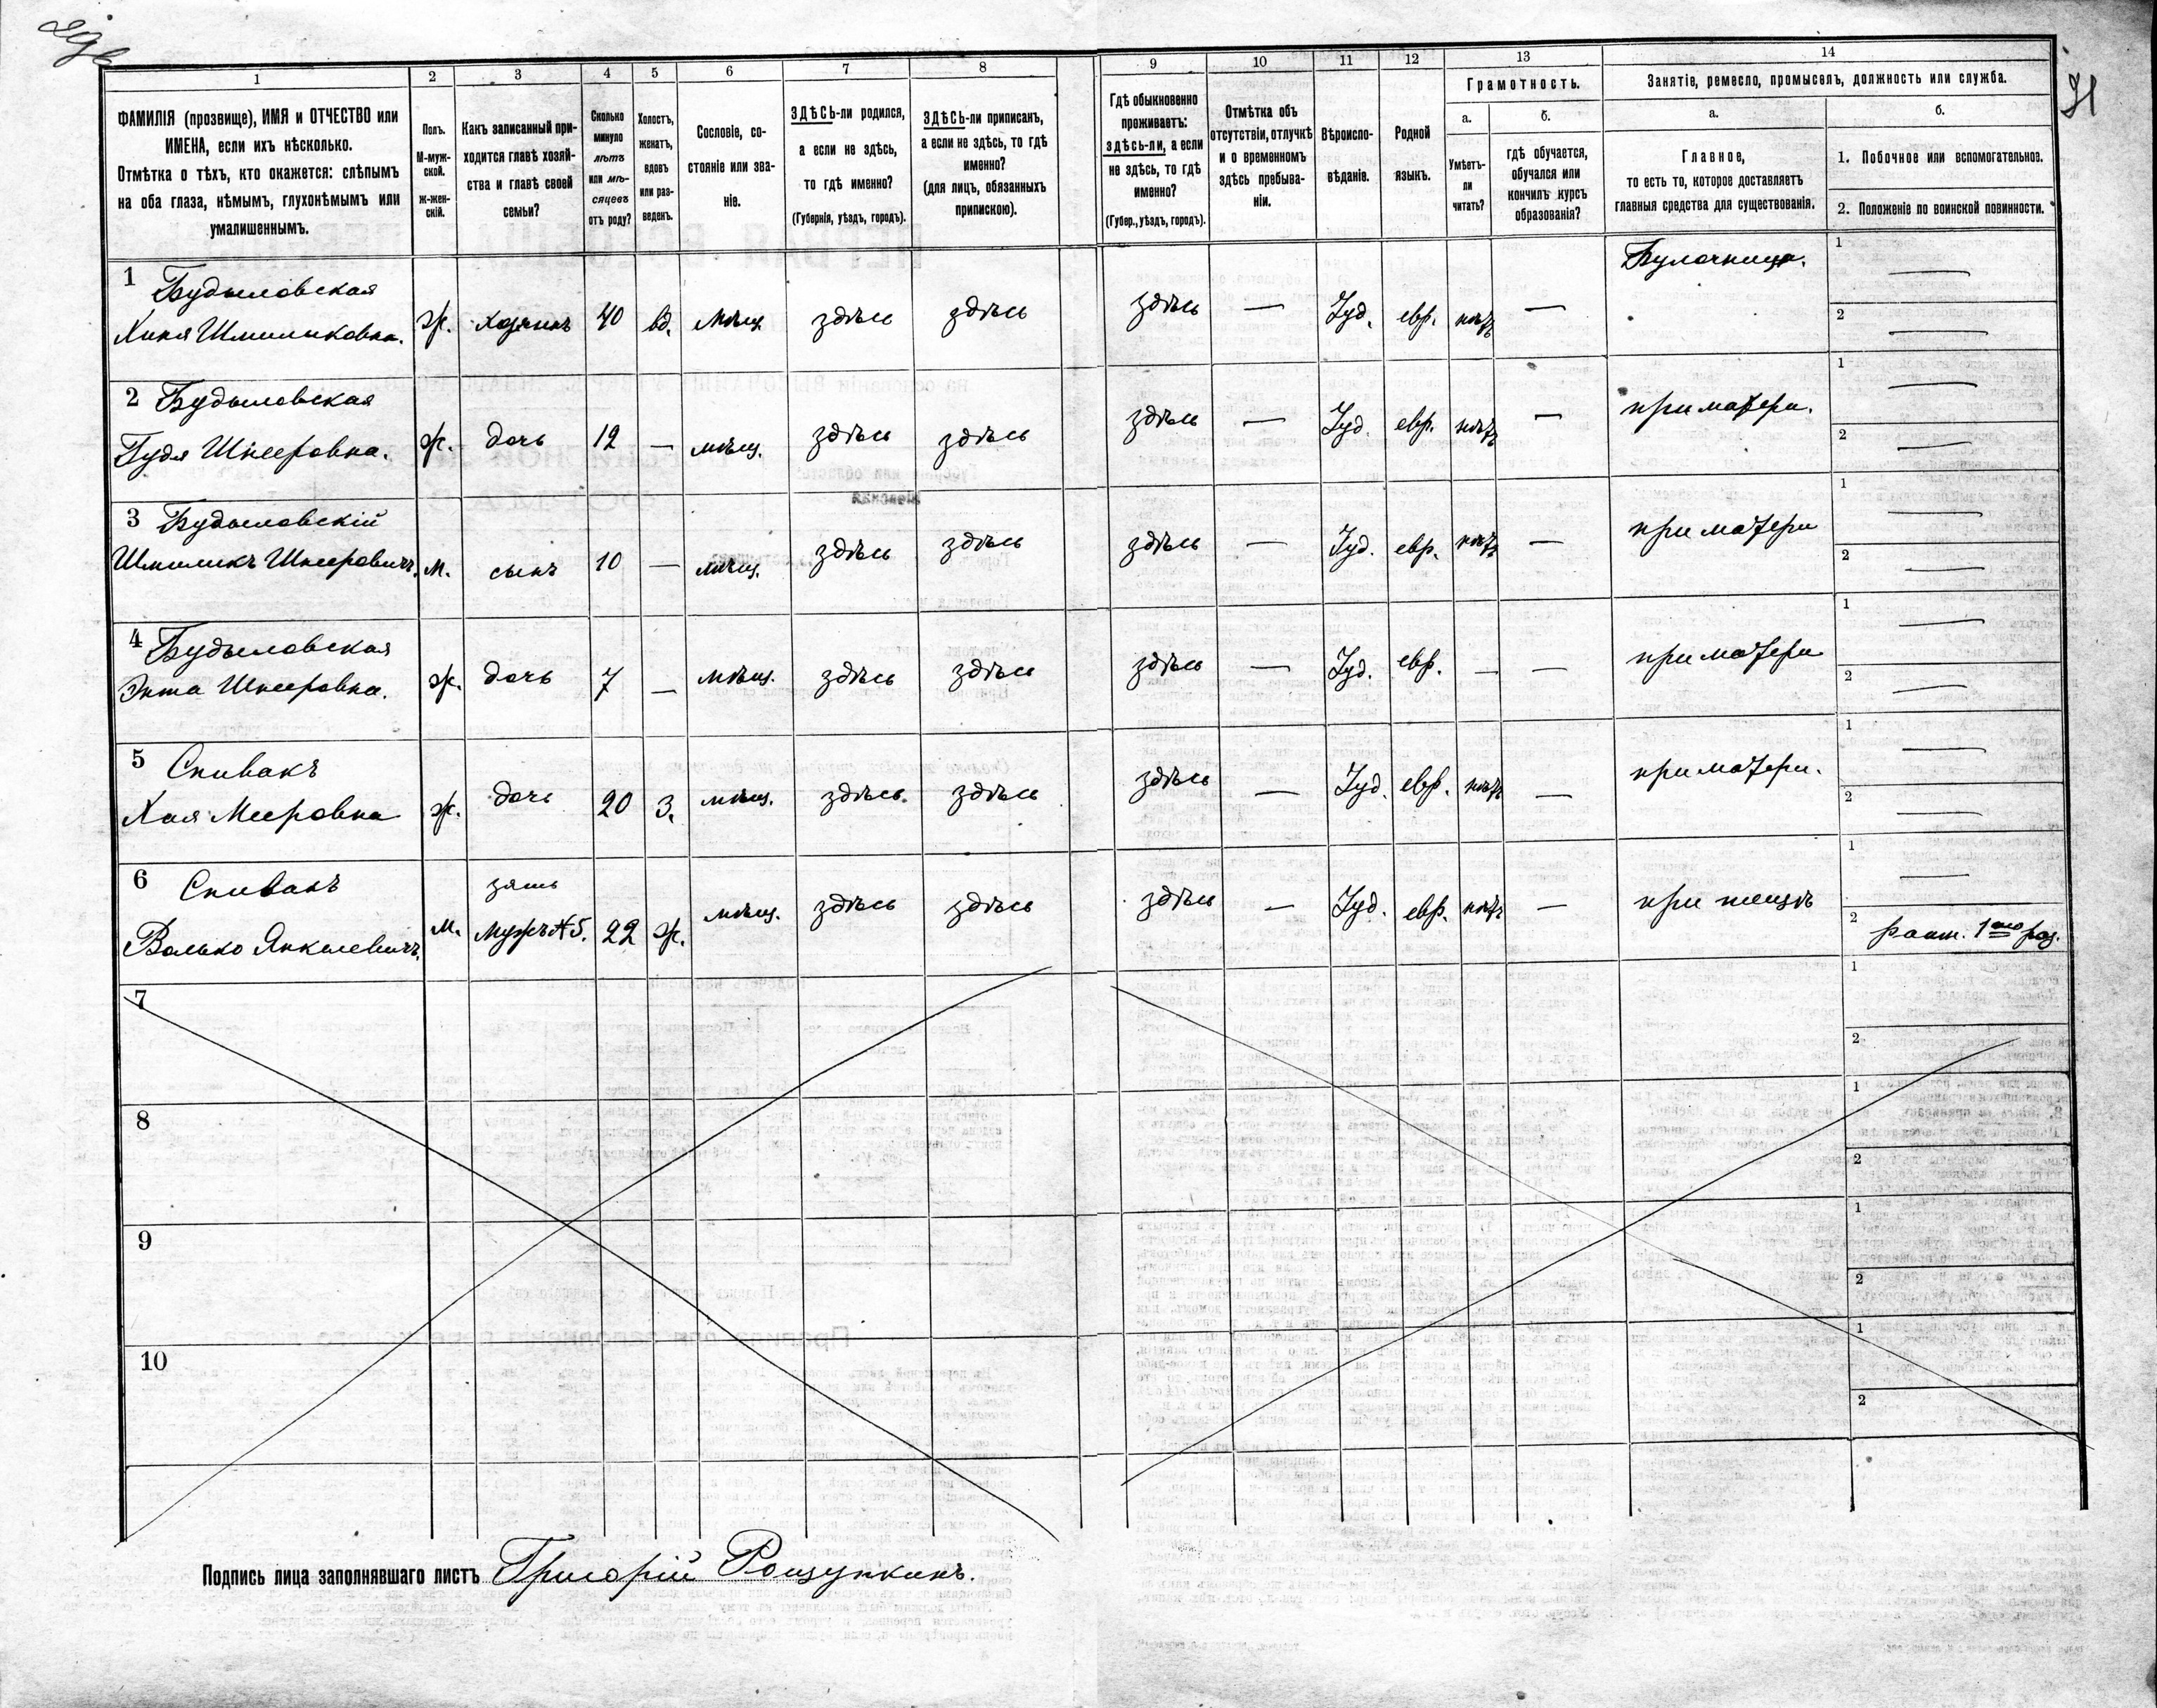 1 2 3 4 5 6 7 8 9 10 11 12 13 14
ФАМИЛІЯ (прозвище), ИМЯ и ОТЧЕСТВО или
ИМЕНА, если ихъ нѣсколько.
Отмѣтка о тѣхъ, кто окажется: слѣпымъ
на оба глаза, нѣмымъ, глухонѣмымъ или
умалишеннымъ.
Полъ.
М-муж-
ской.
Ж-жен-
скій.
Какъ записанный при-
ходится главѣ хозяй-
ства и главѣ своей
семьи?
Сколько
минуло
лѣтъ
или мѣ-
сяцевъ
отъ роду?
Холостъ,
женатъ,
вдовъ
или раз-
веденъ.
Сословіе, со-
стояніе или зва-
ніе.
ЗДѢСЬ-ли родился,
а если не здѣсь,
то гдѣ именно?
(Губернія, уѣздъ, городъ).
ЗДѢСЬ-ли приписанъ,
а если не здѣсь, то гдѣ
именно?
(для лицъ, обязанныхъ
припискою).
Гдѣ обыкновенно
проживаетъ:
здѣсь-ли, а если
не здѣсь, то гдѣ
именно?
(Губер., уѣздъ, городъ).
Отмѣтка объ
отсутствіи, отлучкѣ
и о временномъ
здѣсь пребыва-
ніи.
Вѣроиспо-
вѣданіе.
Родной
языкъ.
Грамотность.
а.
Умѣетъ-
ли
читать?
б.
гдѣ обучается,
обучался или
кончилъ курсъ
образованія?
Занятіе, ремесло, промыселъ, должность или служба.
а.
Главное,
то есть то, которое доставляетъ
главныя средства для существованія.
б.
1. Побочное или вспомогательное.
2. Положеніе по воинской повинности.
1 Будыловская
Хиня Шмилыковна. ж. хозяинъ 40 вд. мѣщ. здѣсь здѣсь здѣсь — Іуд. евр. нѣтъ — Булочница.
1 —
2 —
2 Будыловская
Гудя Шнееровна. ж. дочь 12 — мѣщ. здѣсь здѣсь здѣсь — Іуд. евр. нѣтъ — при матери.
1 —
2 —
3 Будыловскій
Шмиликъ Шнееровичъ. м. сынъ 10 — мѣщ. здѣсь здѣсь здѣсь — Іуд. евр. нѣтъ — при матери
1 —
2 —
4 Будыловская
Энта Шнееровна. ж. дочь 7 — мѣщ. здѣсь здѣсь здѣсь — Іуд. евр. — — при матери
1 —
2 —
5 Спивакъ
Хая Мееровна ж. дочь 20 З. мѣщ. здѣсь. здѣсь здѣсь — Іуд. евр. нѣтъ — при матери.
1 —
2 —
6 Спивакъ
Волько Янкелевичъ. м. зять
мужъ №5. 22 ж. мѣщ. здѣсь здѣсь здѣсь — Іуд. евр. нѣтъ — при тещѣ
1 —
2 ратн. 1го раз.
7
1
2
8
1
2
9
1
2
10
1
2
Подпись лица заполнявшаго листъ Григорій Рощупкинъ.